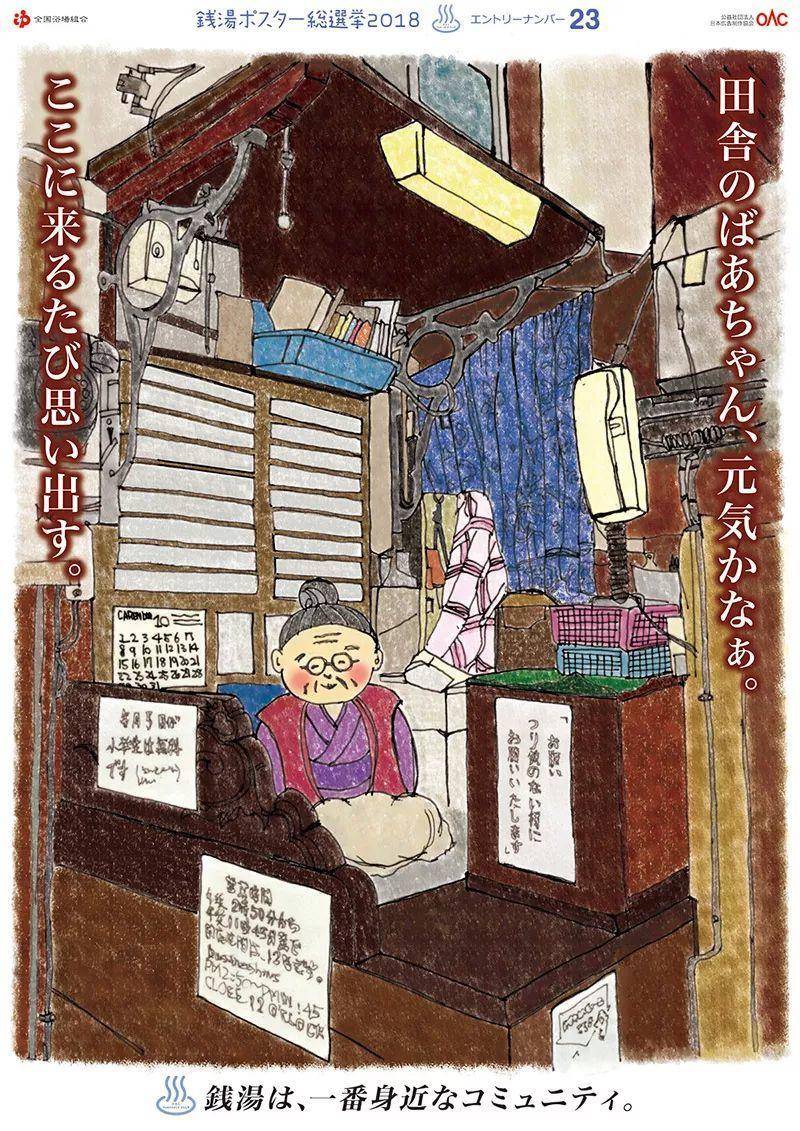 全国浴場組合
銭湯ポスター総選挙2018
エントリーナンバー 23
公益社団法人
日本広告制作協会
OAC
田舎のばあちゃん、元気かなぁ。
ここに来るたび思い出す。
10
1 2 3 4 5 6 7
8 9 10 11 12 13 14
15 16 17 18 19 20 21
22 23 24 25 26 27 28
小学生は無料
です
「お願い
つり銭のない様に
お願いいたします」
営業時間
午後2時50分から
午後11時45分まで
銭湯は、一番身近なコミュニティ。